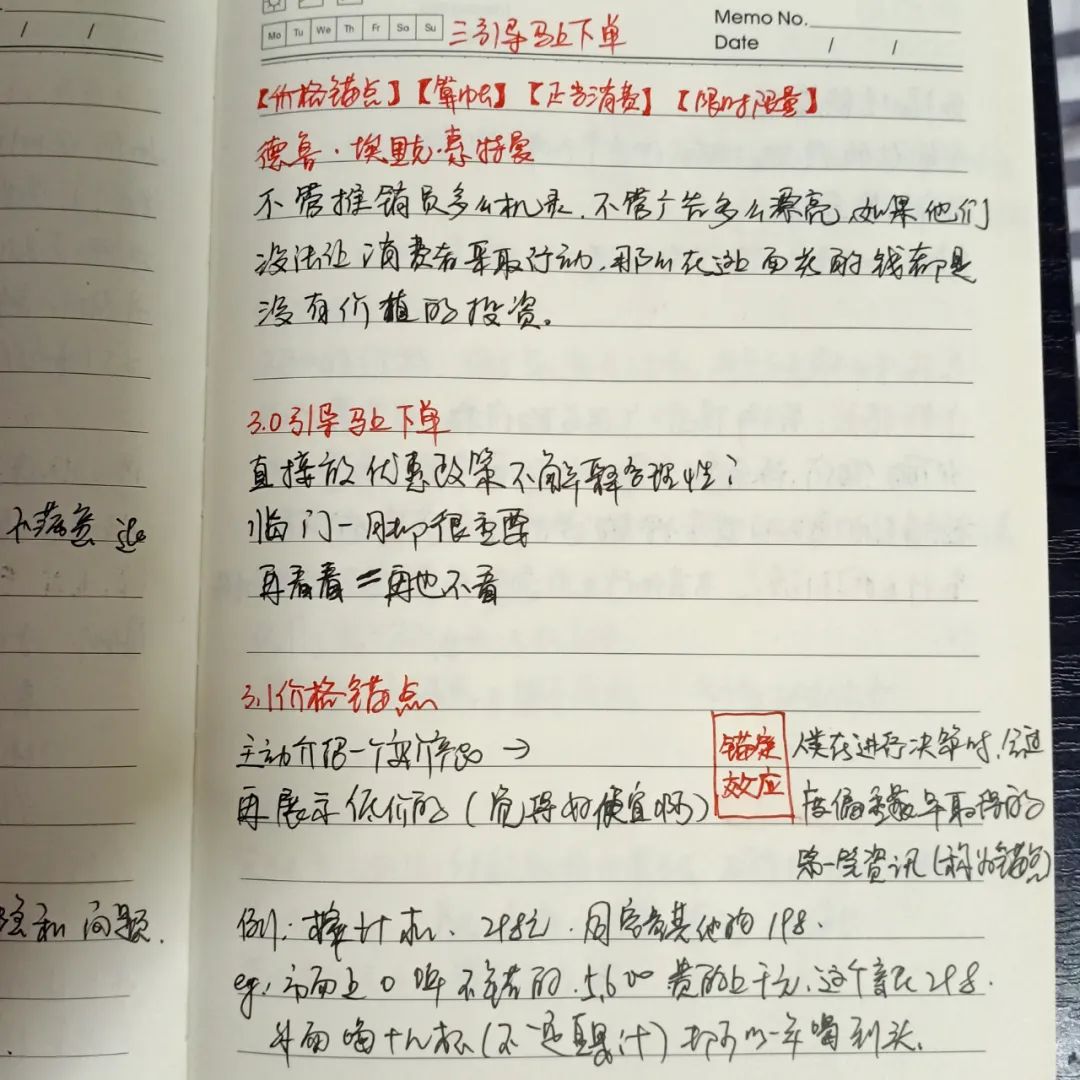 Mo Tu We Th Fr Sa Su
三引导马上下单
Memo No.
Date / /
/ /
【价格锚点】【算帐】【正当消费】【限时限量】
德鲁·埃里克·惠特曼
不管推销员多么机灵，不管广告多么漂亮，如果他们
没法让消费者采取行动，那么在这上面花的钱都是
没有价值的投资。
3.0引导马上下单
直接放优惠政策不解释合理性？
临门一脚很重要
再看看＝再也不看
3.1价格锚点
主动介绍一个 →
再展示低价的（觉得好便宜啊）
锚定
效应
人类在进行决策时，会过
度偏重最早取得的
第一笔资讯（称为锚点）
例：榨汁机、298元、同容量其他的198.
eg：市面上口碑不错的，5、600 贵的上千元，这个只 298.
外面喝十几杯（不一定真果汁）都可以一年喝到头.
和问题.